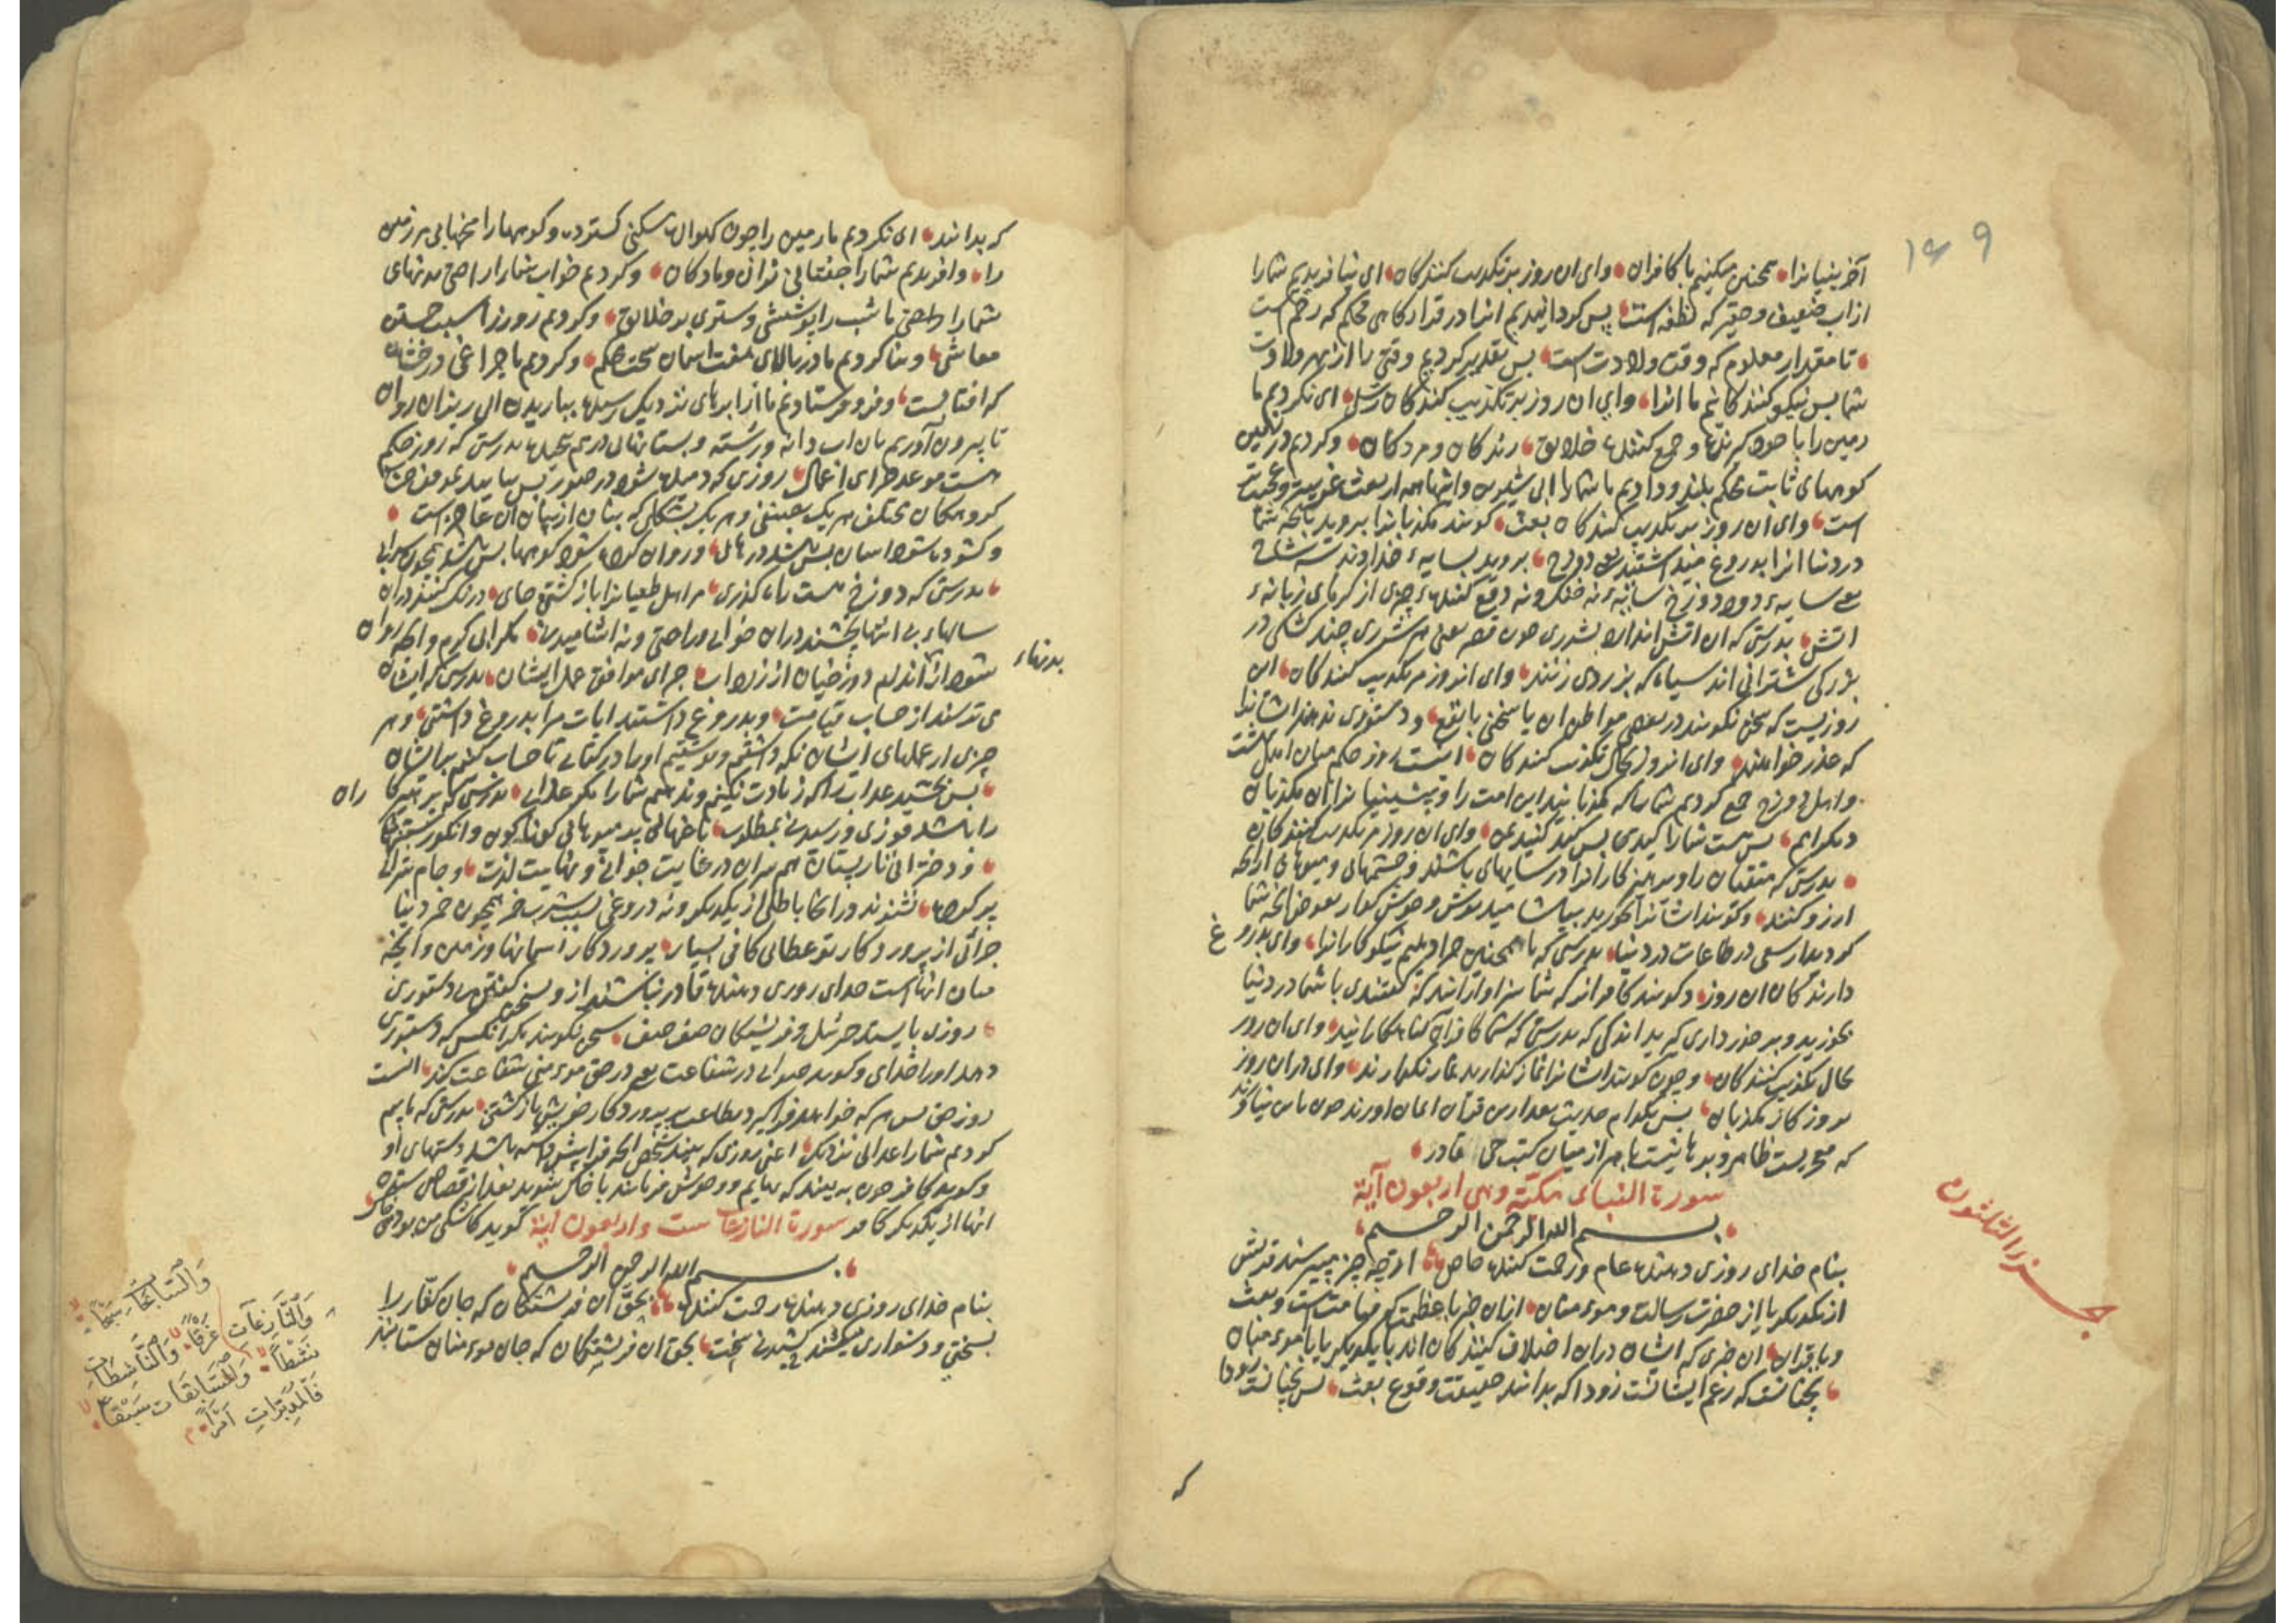 ۱۶۹
آخرینیانرا همچنین میکنیم با کافران وای ان روز بر تکذیب کنندکان ای نیافریدیم شما را
از اب ضعیف و حقیر که نطفه است پس کردانیدیم انرا در قرارکاهی محکم که رحم است
تا مقدار معلوم که وقت ولادت است پس تقدیر کردیم وقتی را از بهر ولادت
شما پس نیکو کنندکانیم ما انرا وای ان روز بر تکذیب کنندکان رسل ای نکردیم ما
زمین را با خود کیرنده و جمع کننده خلایق زندکان و مردکان و کردیم در زمین
کوههای ثابت محکم بلند و دادیم ما شما را ابی شیرین و اینها همه از بعث غریب و عجیب تر
است وای ان روز بر تکذیب کنندکان بعث کویند مکذبانرا بروید بانچه شما
در دنیا انرا بدروغ میداشتید یعنی دوزخ بروید بسایه خداوند سه شاخ
یعنی سایه دود دوزخ سایه نه خنک و نه دفع کننده چیزی از کرمای زبانه
اتش بدرستی که ان اتش اندازد بشرری چون قصر یعنی هر شرری چند کشکی در
بزرکی شترانی اند سیاه که بزردی زنند وای انروز بر تکذیب کنندکان این
روزیست که سخن نکویند در بعضی مواطن ان یا سخنی با نفع و دستوری ندهند ایشانرا
که عذر خواهند وای انروز بحال تکذیب کنندکان اینست روز حکم میان اهل بهشت
و اهل دوزخ جمع کردیم شما را که مکذبانید این امت را و پیشینیانرا از مکذبان
دیکر امم پس هست شما را کیدی پس کید کنید بمن وای ان روز بر تکذیب کنندکان
بدرستی که متقیان را و پرهیزکارانرا در سایهای باشند و چشمهای و میوهای از انچه
ارزو کنند و کویند ایشانرا بخورید بیاشامید نوش و خوش کوار بعوض انچه شما
کردید از سعی در طاعات در دنیا بدرستی که ما همچنین جزا دهیم نیکوکارانرا وای بدروغ
دارندکان ان روز و کویند کافرانرا که شما سزاوار انید که کفتندی با شما در دنیا
بخورید و برخورداری کیرید اندکی که بدرستی که شما کافران کناهکارانید وای ان روز
بحال تکذیب کنندکان و چون کویند ایشانرا نماز کذارید نماز نکذارند وای در ان روز
بروزکار مکذبان پس بکدام حدیث بعد از این قرآن ایمان اورند چون باین نیاورند
که معجزیست ظاهر و برهانیست باهر از میان کتب حی قادر
سورة النباء مکیّة وهی اربعون آیة
بسم الله الرحمن الرحیم
جزء الثلثون
بنام خدای روزی دهنده عام و رحمت کننده خاص از چه چیز میپرسند قریش
از یکدیکر یا از حضرت رسالت و موءمنان ازان خبر با عظمت که قیامتست و بعث
و یا قران ان خبری که ایشان دران اختلاف کنندکان اند با یکدیکر یا با موءمنان
نچنانست که زعم ایشانست زود ا که بدانند حقیقت وقوع بعث پس نچنانست زودا
که
که بدانند ای نکردیم ما زمین را چون کهواره مسکنی کسترده و کوهها را میخهایی بر زمین
را و افریدیم شما را جفتهایی نران و مادکان و کردیم خواب شما را راحتی بدنهای
شما را و ساختیم ما شب را پوششی و ستری بر خلایق و کردیم روز را سبب جستن
معاشی و بنا کردیم ما در بالای هفت اسمان سخت محکم و کردیم ما چراغی درخشان
که افتابست و فرو فرستادیم ما از ابرهای نزدیک رسیده بباریدن ابی ریزان روان
تا بیرون آوریم بان اب دانه و رسته و بستانهای درهم پیچیده بدرستی که روز حکم
هست موعد جزای اعمال روزی که دمیده شود در صور پس بیایید بموقف
کروهکان مختلف هر یک بجنسی و هر یک بشکلی که بنان از بیان ان عاجز است
و کشوده شود اسمان پس باشد درهای و روان کرده شود کوهها پس باشد همچون سرابی
بدرستی که دوزخ هست راه کذری مر اهل طغیانرا بازکشتن جای درنک کنند دران
سالهاء بی انتها نچشند دران خوابی و راحتی و نه اشامیدنی مکر ابی کرم و انچه روان
بدنهاء
شود از اندام دوزخیان از زرداب جزای موافق عمل ایشان بدرستی که ایشان
می ترسند از حساب قیامت و بدروغ داشتند ایات مرا بدروغ داشتنی و هر
چیزی از عملهای ایشان نکه داشتیم و نوشتیم اورا در کتابی تا حساب کنیم بر ایشان
پس بچشید عذاب را که زیادت نکنیم و ندهیم شما را مکر عذابی بدرستی که پرهیزکا
ران
را باشد فوزی و رسیدنی بمطلوب باغهایی پر میوهایی کوناکون و انکور بستنها
و دخترانی نار پستان هم سران در غایت جوانی و نهایت لذت و جام شرابی
پر کرده نشنوند در انجا باطلی از یکدیکر و نه دروغی بسبب شرب خمر همچون خمر دنیا
جزائی از پروردکار تو عطائی کافی بسیار پروردکار اسمانها و زمین و انچه
میان انهاست خدای روزی دهنده قادر نباشند از و بسخن کفتن بی دستوری
روزی بایستد جبرئیل و فرشتکان صف صف سخن نکویند مکر انکس که دستوری
دهد اورا خدای و کوید صوابی در شفاعت یعنی در حق موءمنی شفاعت کند اینست
روز حق پس هر که خواهد فرا کیرد بطاعت پروردکار خویش بازکشتی بدرستی که ما بیم
کردیم شما را عذابی نزدیک اعنی روزی که بیند شخص انچه فرا پیش داشته باشد دستهای او
و کوید کافر چون به بیند که بهایم و وحوش فرمانند باخاک شوید بعد از قصاص ستدن
انها از یکدیکر کافر سورة النازعات ست واربعون ایة کوید کاشکی من بودمی خاک
بسم الله الرحمن الرحیم
بنام خدای روزی دهنده رحمت کننده بحق ان فرشتکان که جان کفّار را
بسختی و دشواری میکشند کشیدنی سخت بحق ان فرشتکان که جان موءمنان ستانند
وَالنَّازِعَاتِ غَرْقًا وَالنَّاشِطَاتِ
نَشْطًا وَالسَّابِحَاتِ سَبْحًا
فَالسَّابِقَاتِ سَبْقًا
فَالْمُدَبِّرَاتِ أَمْرًا